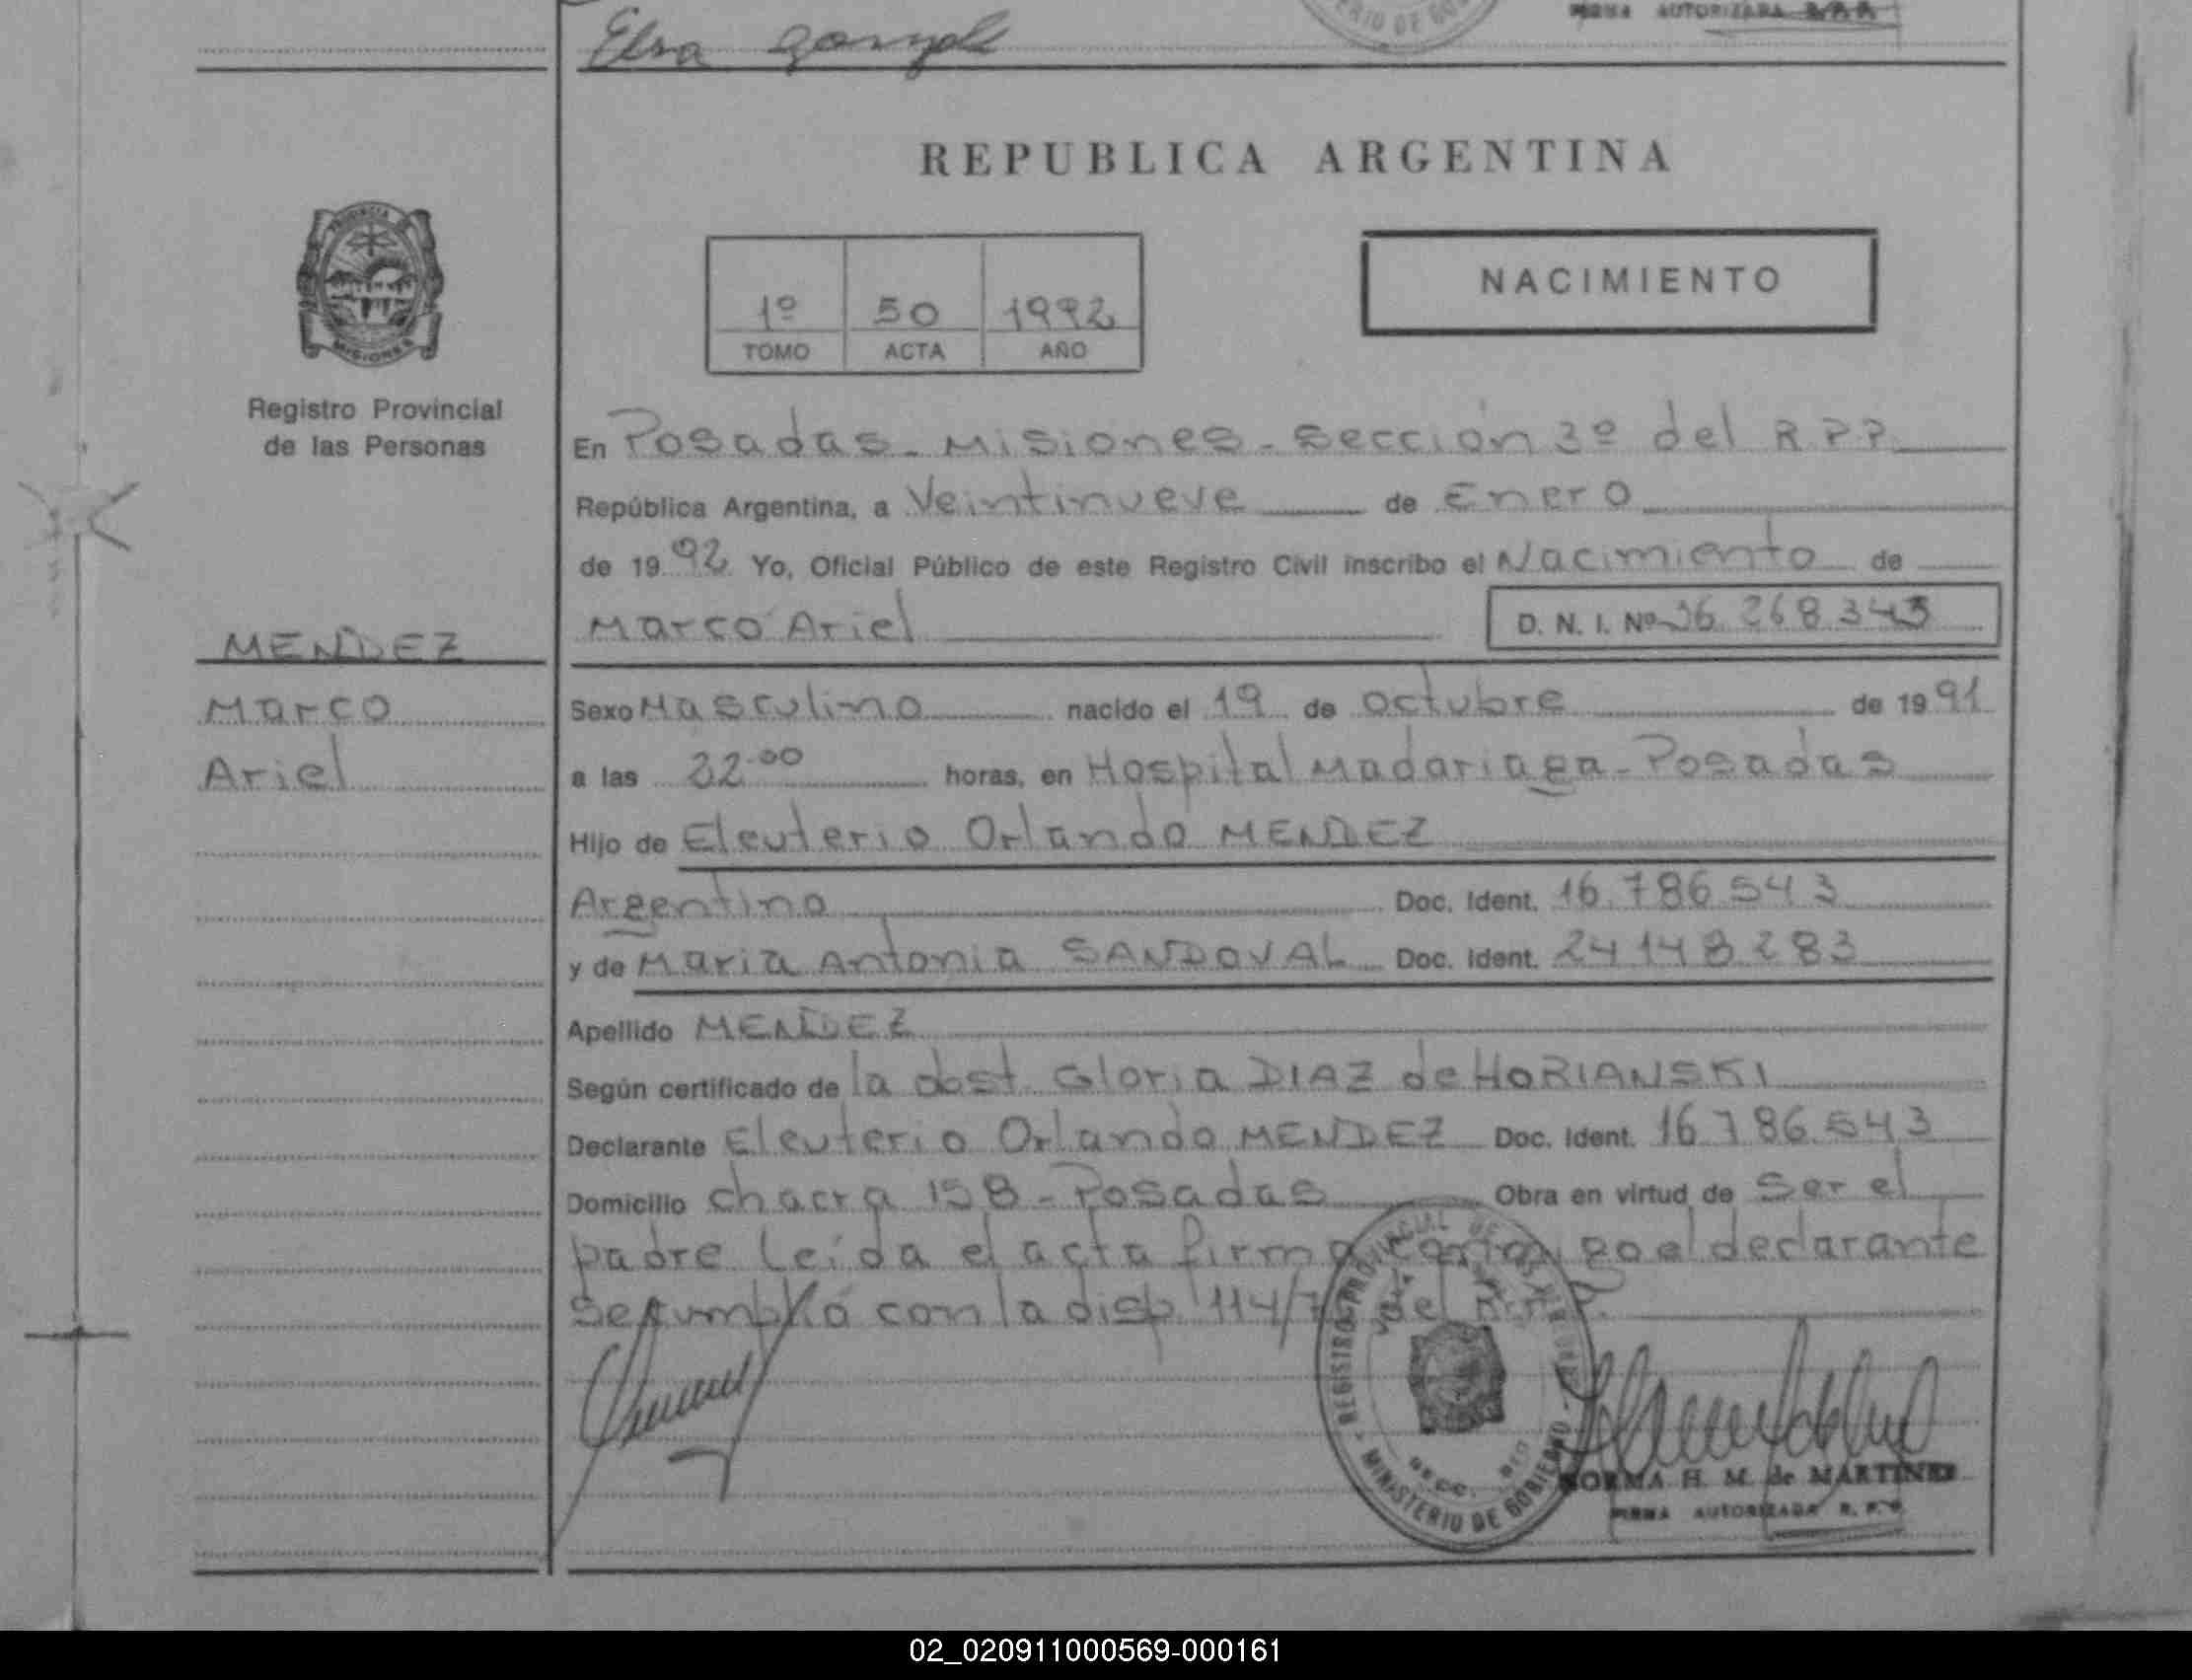 Elsa
FIRMA AUTORIZADA R.P.P.
REPUBLICA ARGENTINA
NACIMIENTO
1º 50 1992
TOMO ACTA AÑO
PROVINCIA
MISIONES
Registro Provincial
de las Personas
MENDEZ
Marco
Ariel
En Posadas - Misiones - Sección 3º del R.P.P.
República Argentina, a Veintinueve de Enero
de 1992 Yo, Oficial Público de este Registro Civil inscribo el Nacimiento de
Marco Ariel D. N. I. Nº 36.268.343
Sexo Masculino nacido el 19 de octubre de 1991
a las 22.00 horas, en Hospital Madariaga - Posadas
Hijo de Eleuterio Orlando MENDEZ
Argentino Doc. Ident. 16.786.543
y de Maria Antonia SANDOVAL Doc. Ident. 24148283
Apellido MENDEZ
Según certificado de la obst. Gloria DIAZ de HORIANSKI
Declarante Eleuterio Orlando MENDEZ Doc. Ident. 16.786.543
Domicilio chacra 158 - Posadas Obra en virtud de Ser el
padre Leída el acta firma conmigo el declarante
Se cumplió con la disp. 114/7 del R.P.P.
REGISTRO PROVINCIAL DE LAS PERSONAS
MINISTERIO DE GOBIERNO
NORMA H. M. de MARTINEZ
FIRMA AUTORIZADA R. P. P.
02_020911000569-000161